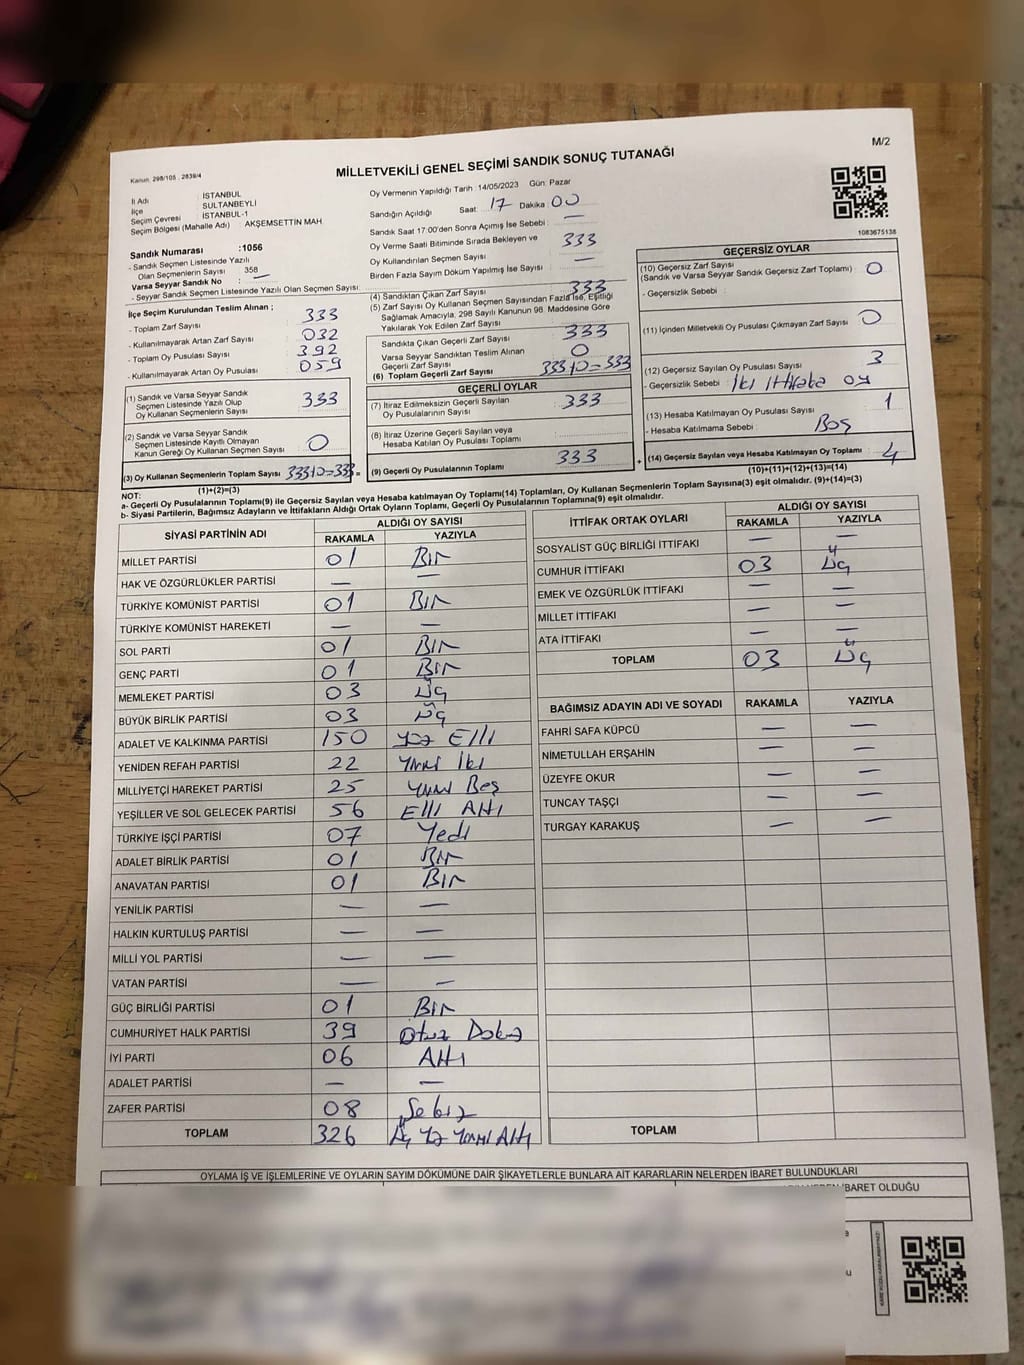 M/2
Kanun: 298/105 , 2839/4
MİLLETVEKİLİ GENEL SEÇİMİ SANDIK SONUÇ TUTANAĞI
İl Adı : İSTANBUL
İlçe : SULTANBEYLİ
Seçim Çevresi : İSTANBUL-1
Seçim Bölgesi (Mahalle Adı) : AKŞEMSETTİN MAH.
Sandık Numarası :1056
- Sandık Seçmen Listesinde Yazılı
Olan Seçmenlerin Sayısı : 358
Varsa Seyyar Sandık No : —
- Seyyar Sandık Seçmen Listesinde Yazılı Olan Seçmen Sayısı:
Oy Vermenin Yapıldığı Tarih : 14/05/2023 Gün: Pazar
Sandığın Açıldığı Saat: 17 Dakika 00
Sandık Saat 17:00'den Sonra Açımış İse Sebebi : —
Oy Verme Saati Bitiminde Sırada Bekleyen ve
Oy Kullandırılan Seçmen Sayısı : 333
Birden Fazla Sayım Döküm Yapılmış İse Sayısı : —
1083675138
İlçe Seçim Kurulundan Teslim Alınan ;
- Toplam Zarf Sayısı : 333
- Kullanılmayarak Artan Zarf Sayısı : 032
- Toplam Oy Pusulası Sayısı : 392
- Kullanılmayarak Artan Oy Pusulası : 059
(1) Sandık ve Varsa Seyyar Sandık
Seçmen Listesinde Yazılı Olup
Oy Kullanan Seçmenlerin Sayısı : 333
(2) Sandık ve Varsa Seyyar Sandık
Seçmen Listesinde Kayıtlı Olmayan
Kanun Gereği Oy Kullanan Seçmen Sayısı : 0
(3) Oy Kullanan Seçmenlerin Toplam Sayısı 333+0=333
(1)+(2)=(3)
(4) Sandıktan Çıkan Zarf Sayısı : 333
(5) Zarf Sayısı Oy Kullanan Seçmen Sayısından Fazla İse, Eşitliği
Sağlamak Amacıyla, 298 Sayılı Kanunun 98. Maddesine Göre
Yakılarak Yok Edilen Zarf Sayısı
Sandıkta Çıkan Geçerli Zarf Sayısı : 333
Varsa Seyyar Sandıktan Teslim Alınan
Geçerli Zarf Sayısı : 0
(6) Toplam Geçerli Zarf Sayısı : 333+0=333
GEÇERLİ OYLAR
(7) İtiraz Edilmeksizin Geçerli Sayılan
Oy Pusulalarının Sayısı : 333
(8) İtiraz Üzerine Geçerli Sayılan veya
Hesaba Katılan Oy Pusulası Toplamı :
(9) Geçerli Oy Pusulalarının Toplamı : 333
GEÇERSİZ OYLAR
(10) Geçersiz Zarf Sayısı
(Sandık ve Varsa Seyyar Sandık Geçersiz Zarf Toplamı) : 0
- Geçersizlik Sebebi :
(11) İçinden Milletvekili Oy Pusulası Çıkmayan Zarf Sayısı : 0
(12) Geçersiz Sayılan Oy Pusulası Sayısı : 3
- Geçersizlik Sebebi : İki ittifaka oy
(13) Hesaba Katılmayan Oy Pusulası Sayısı : 1
- Hesaba Katılmama Sebebi : Boş
(14) Geçersiz Sayılan veya Hesaba Katılmayan Oy Toplamı : 4
(10)+(11)+(12)+(13)=(14)
NOT:
a- Geçerli Oy Pusulalarının Toplamı(9) ile Geçersiz Sayılan veya Hesaba katılmayan Oy Toplamı(14) Toplamları, Oy Kullanan Seçmenlerin Toplam Sayısına(3) eşit olmalıdır. (9)+(14)=(3)
b- Siyasi Partilerin, Bağımsız Adayların ve İttifakların Aldığı Ortak Oyların Toplamı, Geçerli Oy Pusulalarının Toplamına(9) eşit olmalıdır.
SİYASİ PARTİNİN ADI ALDIĞI OY SAYISI
RAKAMLA YAZIYLA
MİLLET PARTİSİ 01 Bir
HAK VE ÖZGÜRLÜKLER PARTİSİ — —
TÜRKİYE KOMÜNİST PARTİSİ 01 Bir
TÜRKİYE KOMÜNİST HAREKETİ — —
SOL PARTİ 01 Bir
GENÇ PARTİ 01 Bir
MEMLEKET PARTİSİ 03 Üç
BÜYÜK BİRLİK PARTİSİ 03 Üç
ADALET VE KALKINMA PARTİSİ 150 yüz Elli
YENİDEN REFAH PARTİSİ 22 yirmi İki
MİLLİYETÇİ HAREKET PARTİSİ 25 yirmi Beş
YEŞİLLER VE SOL GELECEK PARTİSİ 56 Elli Altı
TÜRKİYE İŞÇİ PARTİSİ 07 Yedi
ADALET BİRLİK PARTİSİ 01 Bir
ANAVATAN PARTİSİ 01 Bir
YENİLİK PARTİSİ — —
HALKIN KURTULUŞ PARTİSİ — —
MİLLİ YOL PARTİSİ — —
VATAN PARTİSİ — —
GÜÇ BİRLİĞİ PARTİSİ 01 Bir
CUMHURİYET HALK PARTİSİ 39 Otuz Dokuz
İYİ PARTİ 06 Altı
ADALET PARTİSİ — —
ZAFER PARTİSİ 08 Sekiz
TOPLAM 326 Üç Yüz Yirmi Altı
İTTİFAK ORTAK OYLARI ALDIĞI OY SAYISI
RAKAMLA YAZIYLA
SOSYALİST GÜÇ BİRLİĞİ İTTİFAKI — —
CUMHUR İTTİFAKI 03 Üç
EMEK VE ÖZGÜRLÜK İTTİFAKI — —
MİLLET İTTİFAKI — —
ATA İTTİFAKI — —
TOPLAM 03 Üç
BAĞIMSIZ ADAYIN ADI VE SOYADI RAKAMLA YAZIYLA
FAHRİ SAFA KÜPCÜ — —
NİMETULLAH ERŞAHİN — —
ÜZEYFE OKUR — —
TUNCAY TAŞÇI — —
TURGAY KARAKUŞ — —
TOPLAM
OYLAMA İŞ VE İŞLEMLERİNE VE OYLARIN SAYIM DÖKÜMÜNE DAİR ŞİKAYETLERLE BUNLARA AİT KARARLARIN NELERDEN İBARET BULUNDUKLARI
İBARET OLDUĞU